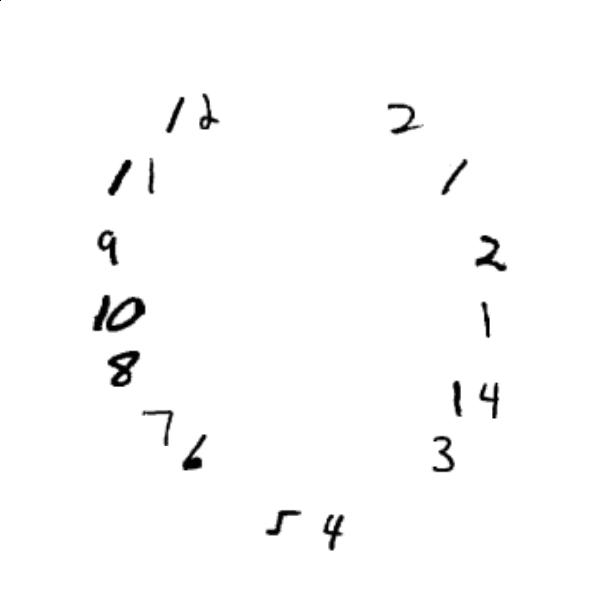 12 2
11 1
9 2
10 1
8
14
7
6 3
5 4